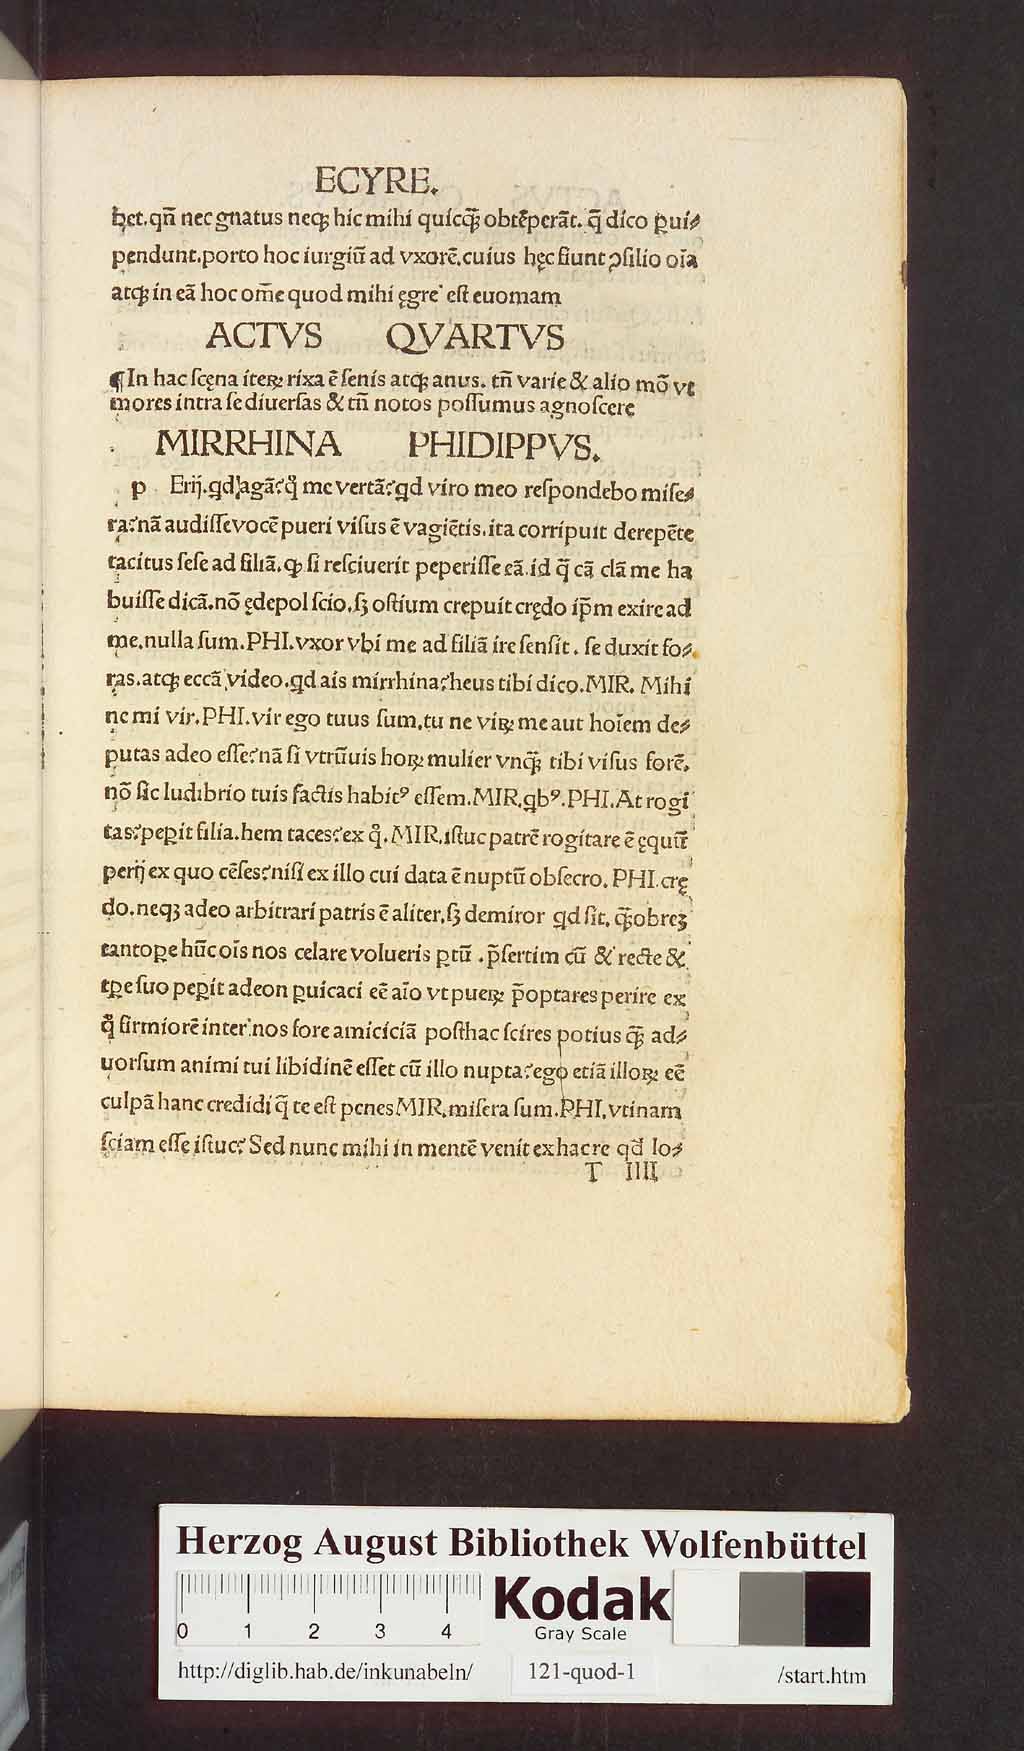 ECYRE.
bet. qñ nec gnatus neqʒ hic mihi quicqʒ̃ obtẽperãt. q̃ dico ꝑui⸗
pendunt. porto hoc iurgiũ ad vxorẽ. cuius hęc fiunt ↄſilio oı̃a
atqʒ in eã hoc om̃e quod mihi ęgre eſt euomam
ACTVS QVARTVS
¶In hac ſcęna iteꝝ rixa ẽ ſenis atqʒ anus. tñ varie & alio mõ vt
mores intra ſe diuerſas & tñ notos poſſumus agnoſcere
MIRRHINA PHIDIPPVS.
p Erij. qd agã? q̊ me vertã? qd viro meo reſpondebo miſe⸗
ra? nã audiſſe vocẽ pueri viſus ẽ vagiẽtis. ita corripuit derepẽte
tacitus ſeſe ad filiã. ꝙ ſi reſciuerit peperiſſe eã. id q̃ cã clã me ha
buiſſe dicã. nõ ędepol ſcio. ſʒ oſtium crepuit crędo ip̃m exire ad
me. nulla ſum. PHI. vxor vbi me ad filiã ire ſenſit. ſe duxit fo⸗
ras. atqʒ eccã video. qd ais mirrhina? heus tibi dico. MIR. Mihi
ne mi vir. PHI. vir ego tuus ſum. tu ne viꝝ me aut hoı̃em de⸗
putas adeo eſſe? nã ſi vtrũuis hoꝝ mulier vnqʒ̃ tibi viſus forẽ.
nõ ſic ludibrio tuis factis habitꝰ eſſem. MIR. qbꝰ. PHI. At rogi
tas? peꝑit filia. hem taces? ex q̊. MIR. iſtuc patrẽ rogitare ẽ ęquũ
perij ex quo cẽſes? niſi ex illo cui data ẽ nuptũ obſecro. PHI. crę
do. neqʒ adeo arbitrari patris ẽ aliter. ſʒ demiror qd ſit. qʒ̃obreʒ
tantoꝑe hũc oı̃s nos celare volueris ꝑtũ. p̃ſertim cũ & recte &
tꝑe ſuo peꝑit adeon ꝑuicaci eẽ aı̃o vt pueꝝ p̃optares perire ex
q̊ firmiorẽ inter nos fore amiciciã poſthac ſcires potius qʒ̃ ad⸗
uorſum animi tui libidinẽ eſſet cũ illo nupta? ego etiã illoꝝ eẽ
culpã hanc credidi q̃ te eſt penes MIR. miſera ſum. PHI. vtinam
ſciam eſſe iſtuc? Sed nunc mihi in mentẽ venit ex hac re qd̃ lo⸗
T IIII
Herzog August Bibliothek Wolfenbüttel
0 1 2 3 4
Kodak
Gray Scale
http://diglib.hab.de/inkunabeln/ 121-quod-1 /start.htm